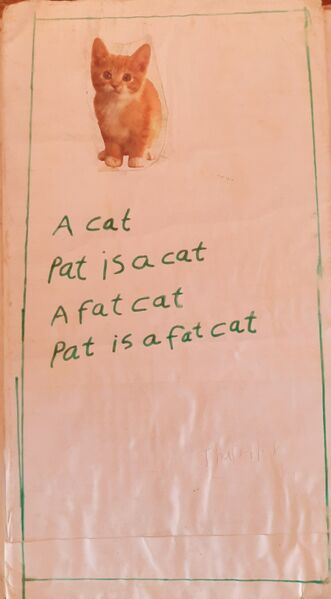 A cat
Pat is a cat
A fat cat
Pat is a fat cat